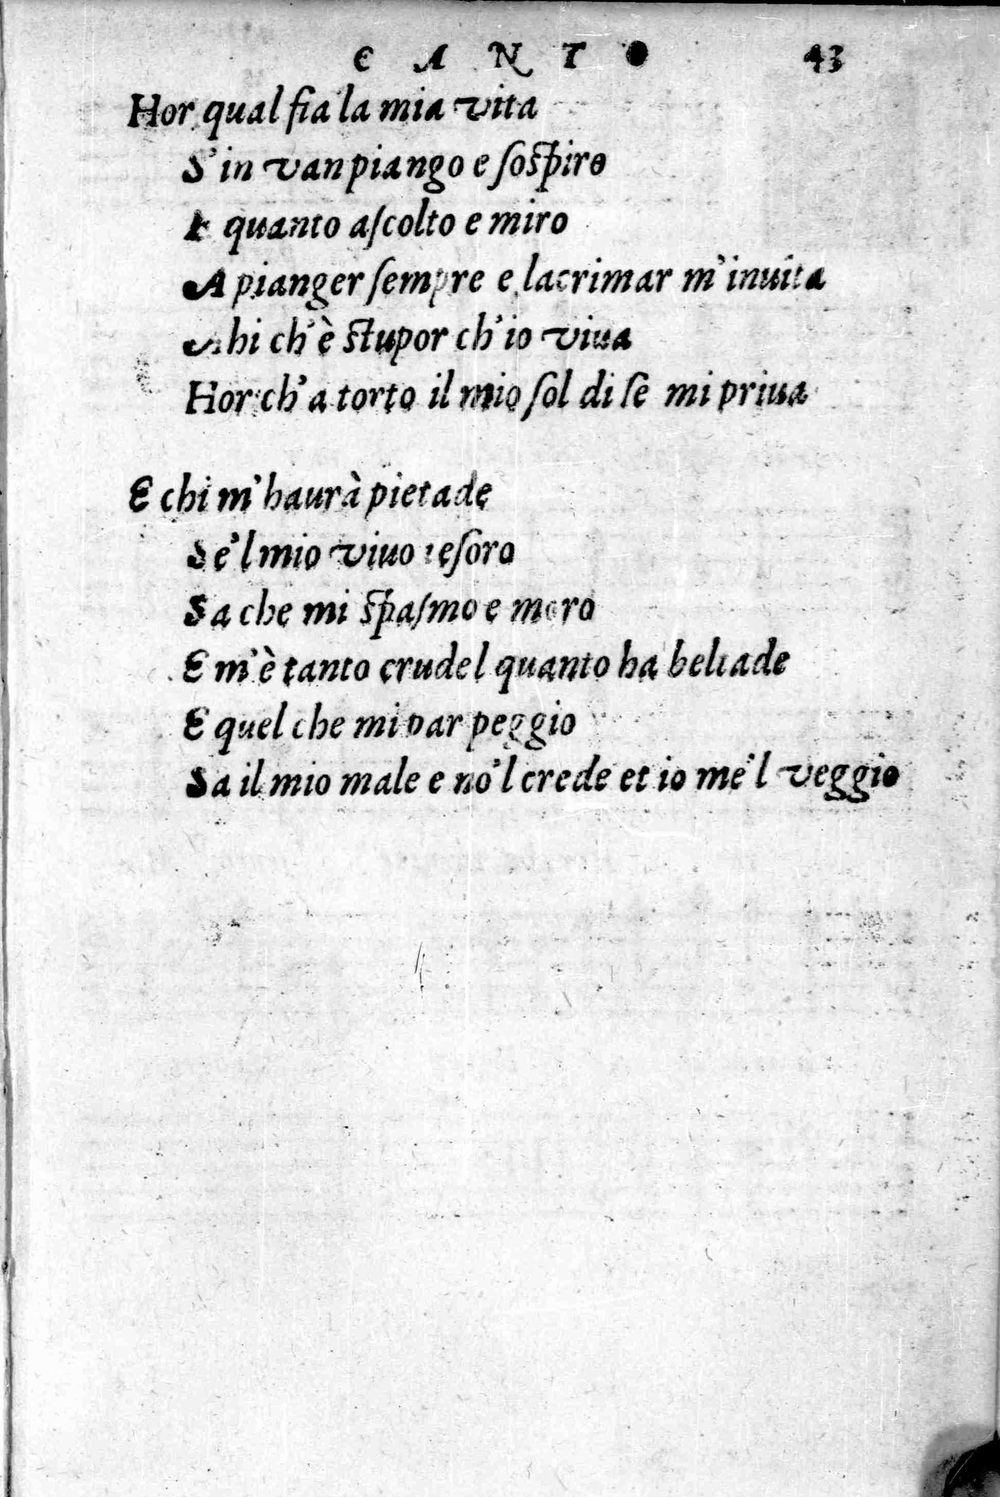 CANTO 43
Hor qual fia la mia vita
S'in van piango e soſpiro
E quanto aſcolto e miro
A pianger ſempre e lacrimar m'inuita
Ahi ch'è ſtupor ch'io viua
Hor ch'a torto il mio ſol di ſe mi priua
E chi m'haurà pietade
Se'l mio viuo teſoro
Sa che mi ſpaſmo e moro
E m'è tanto crudel quanto ha beltade
E quel che mi par peggio
Sa il mio male e no'l crede et io me'l veggio